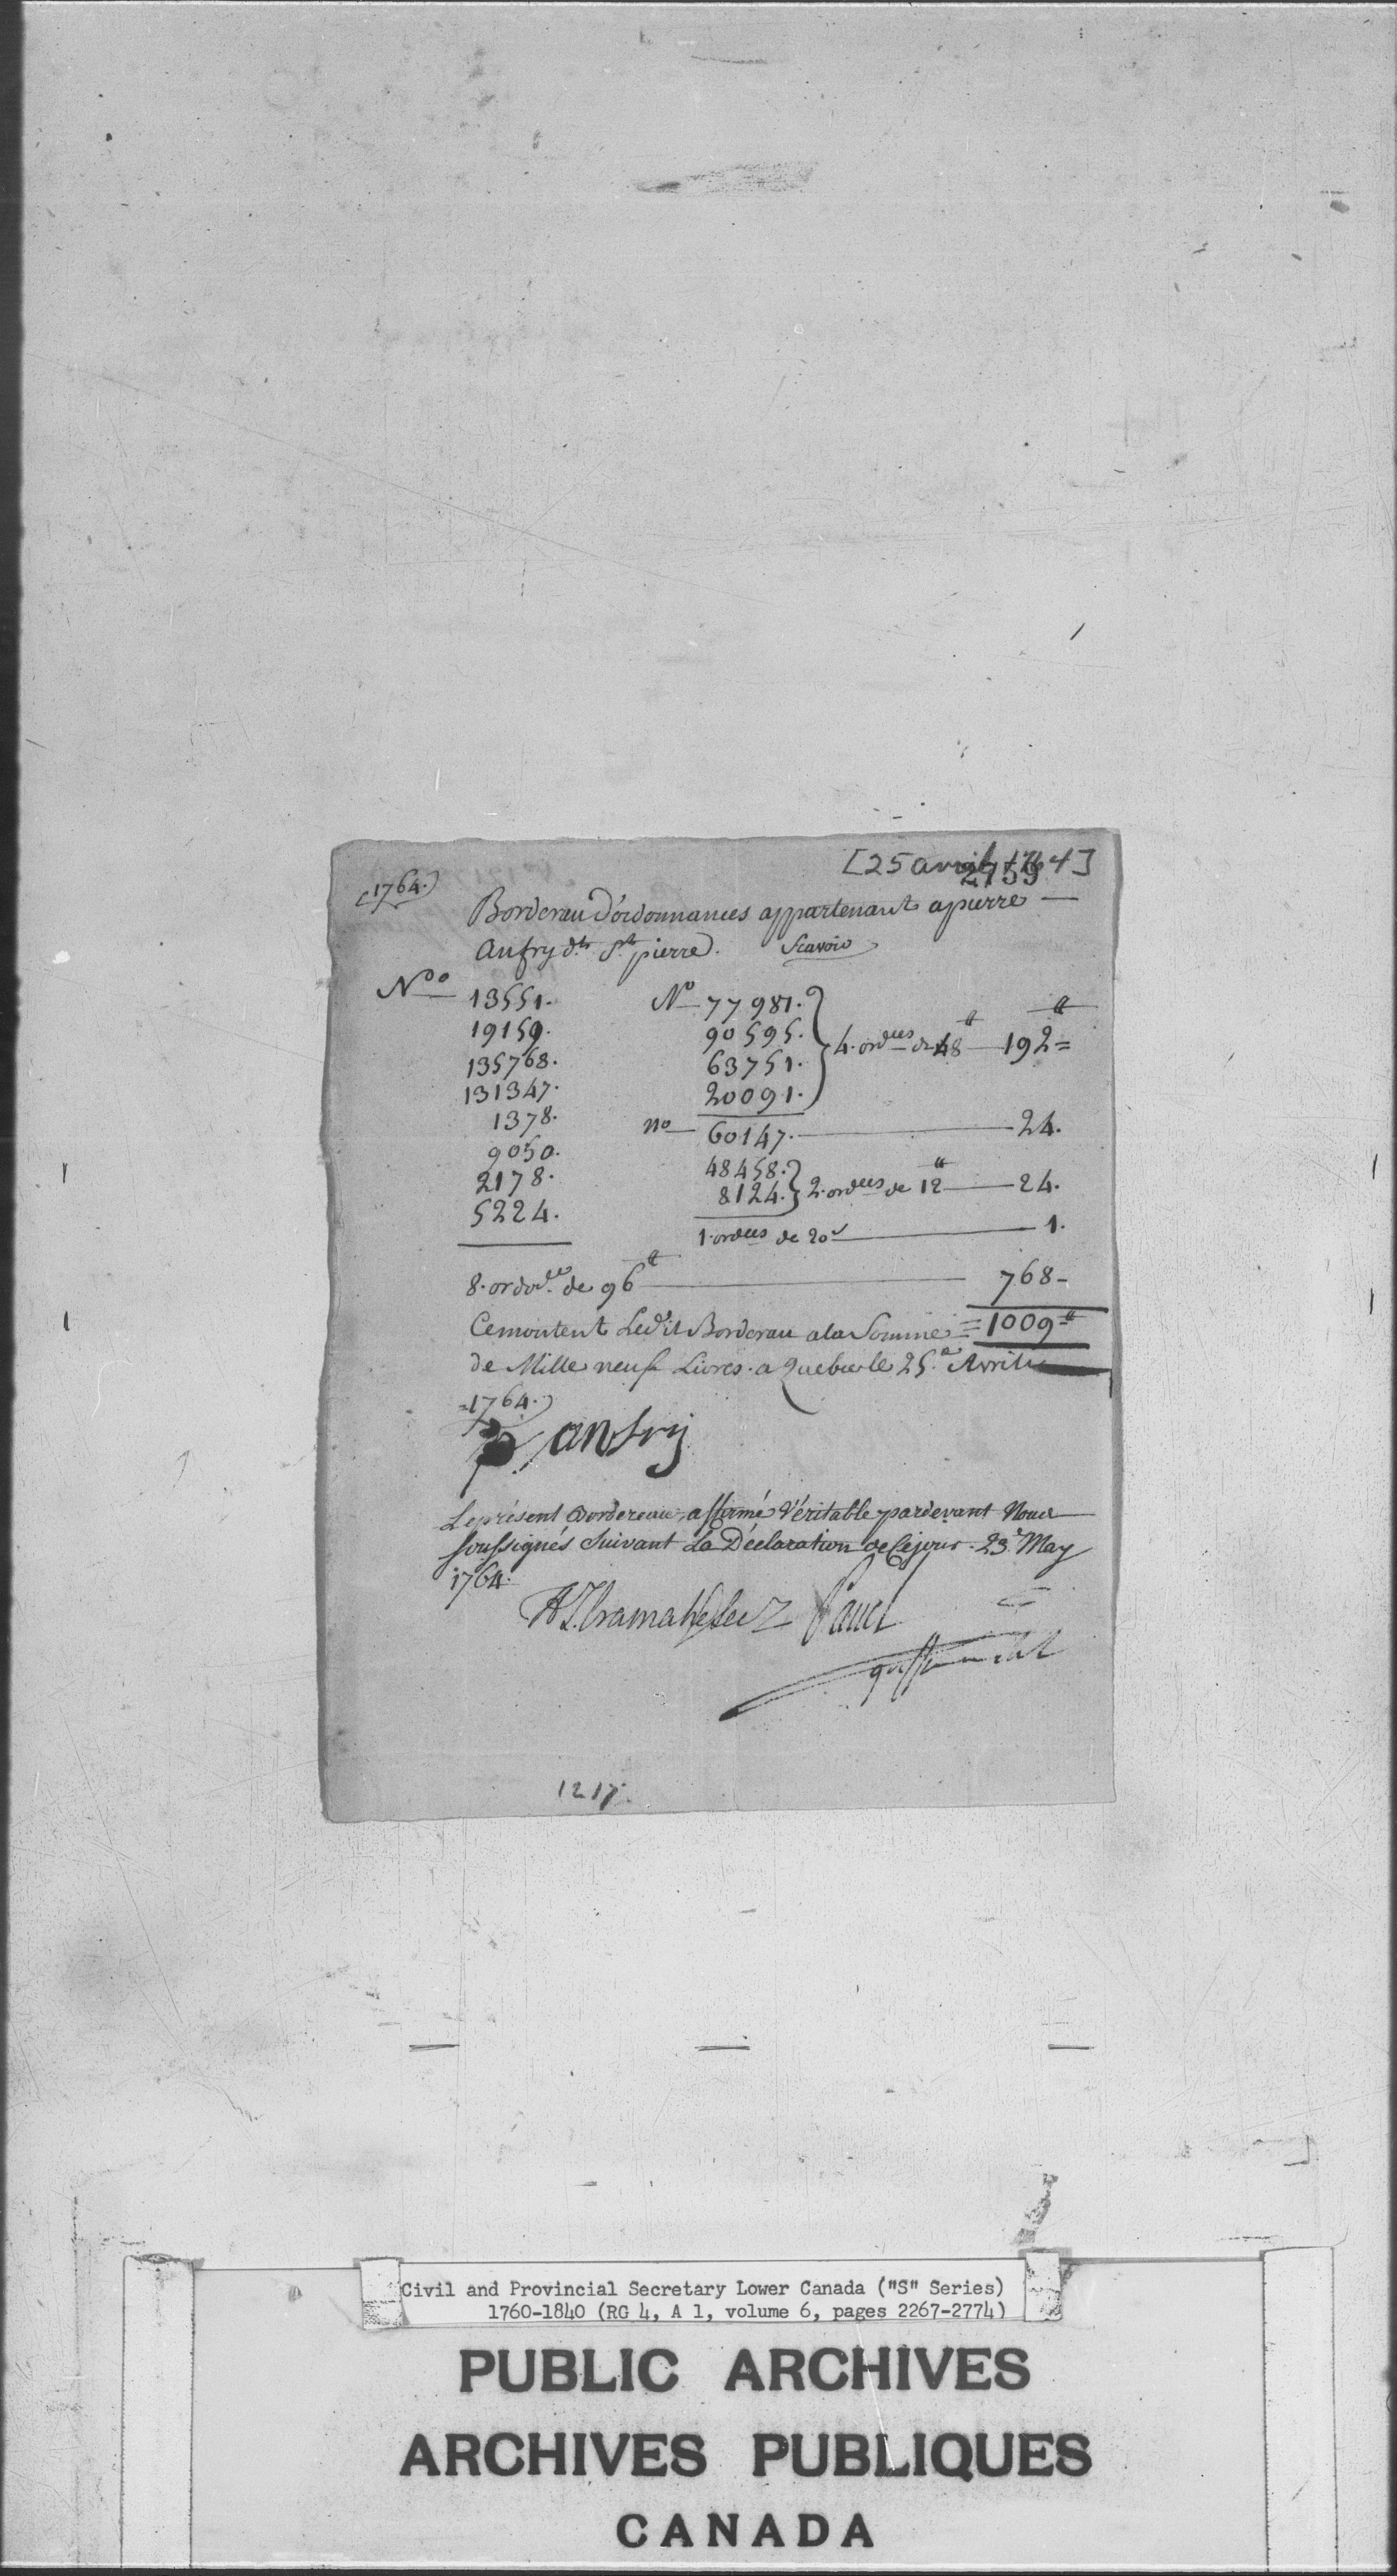 [25 avril 1764]
2759
(1764.)
Bordereau D'ordonnances appartenant a pierre —
Anfry dt. St. pierre. Scavoir
No 13551. No 77981.
19159. 90595. 4. ordces de 48 ₶ — 192 =
135768. 63751.
131347. 20091.
1378. no 60147. — 24.
9050. 48458.
2178. 8124. 2. ordces de 12 ₶ — 24.
5224.
1. ordces de 20 s — 1.
8. ordoces de 96 ₶ — 768 -
Cemontent Ledit Bordereau ala Somme = 1009 ₶
de Mille neuf Livres. a Quebec le 25.e Avril
1764.
P anfry
Le présent Bordereau, affirmé Véritable pardevant Nous
soussignés suivant La Déclaration de Cejour. 23e May
1764.
H T. Cramahé Panet
1217.
Civil and Provincial Secretary Lower Canada ("S" Series)
1760-1840 (RG 4, A 1, volume 6, pages 2267-2774)
PUBLIC ARCHIVES
ARCHIVES PUBLIQUES
CANADA